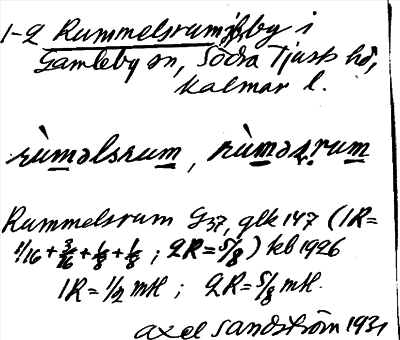 1-2 Rummelsrum, by i
Gamleby sn, Södra Tjusts hd,
Kalmar l.
rùməlsrum, rùməsrum
Rummelsrum G37, glk 147 (1R=
1/16+3/16+1/8+1/8; 2R=5/8) kb 1926
1R=1/2 mtl; 2R=5/8 mtl.
Axel Sandström 1931